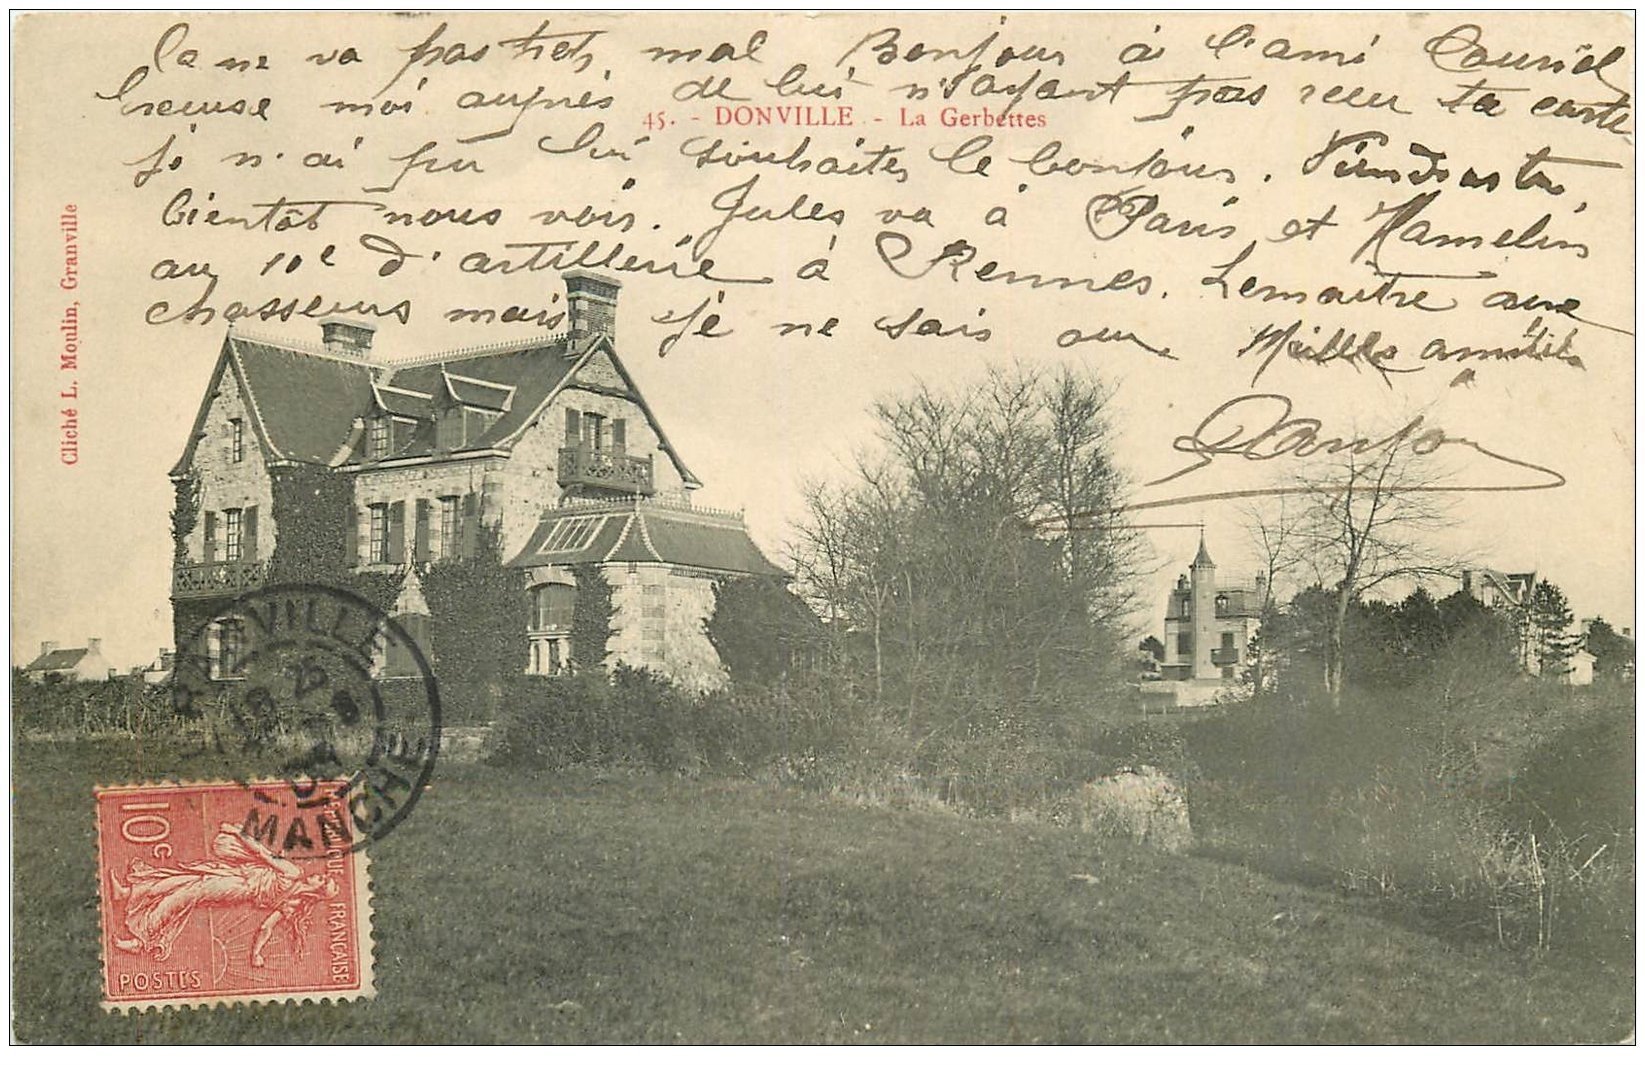 Ca ne va pas très mal Bonjour à l'ami
excuse moi auprès de lui n'ayant pas reçu ta carte
45. - DONVILLE - La Gerbettes
je n'ai pu lui souhaiter le bonjour. Viendras tu
bientôt nous voir. Jules va à Paris et Hamelin
au 10e d'artillerie à Rennes. Lemaitre aux
chasseurs mais je ne sais ou. Milles amitiés
Cliché L. Moulin, Granville
GRANVILLE
MANCHE
10c
POSTES
FRANÇAISE